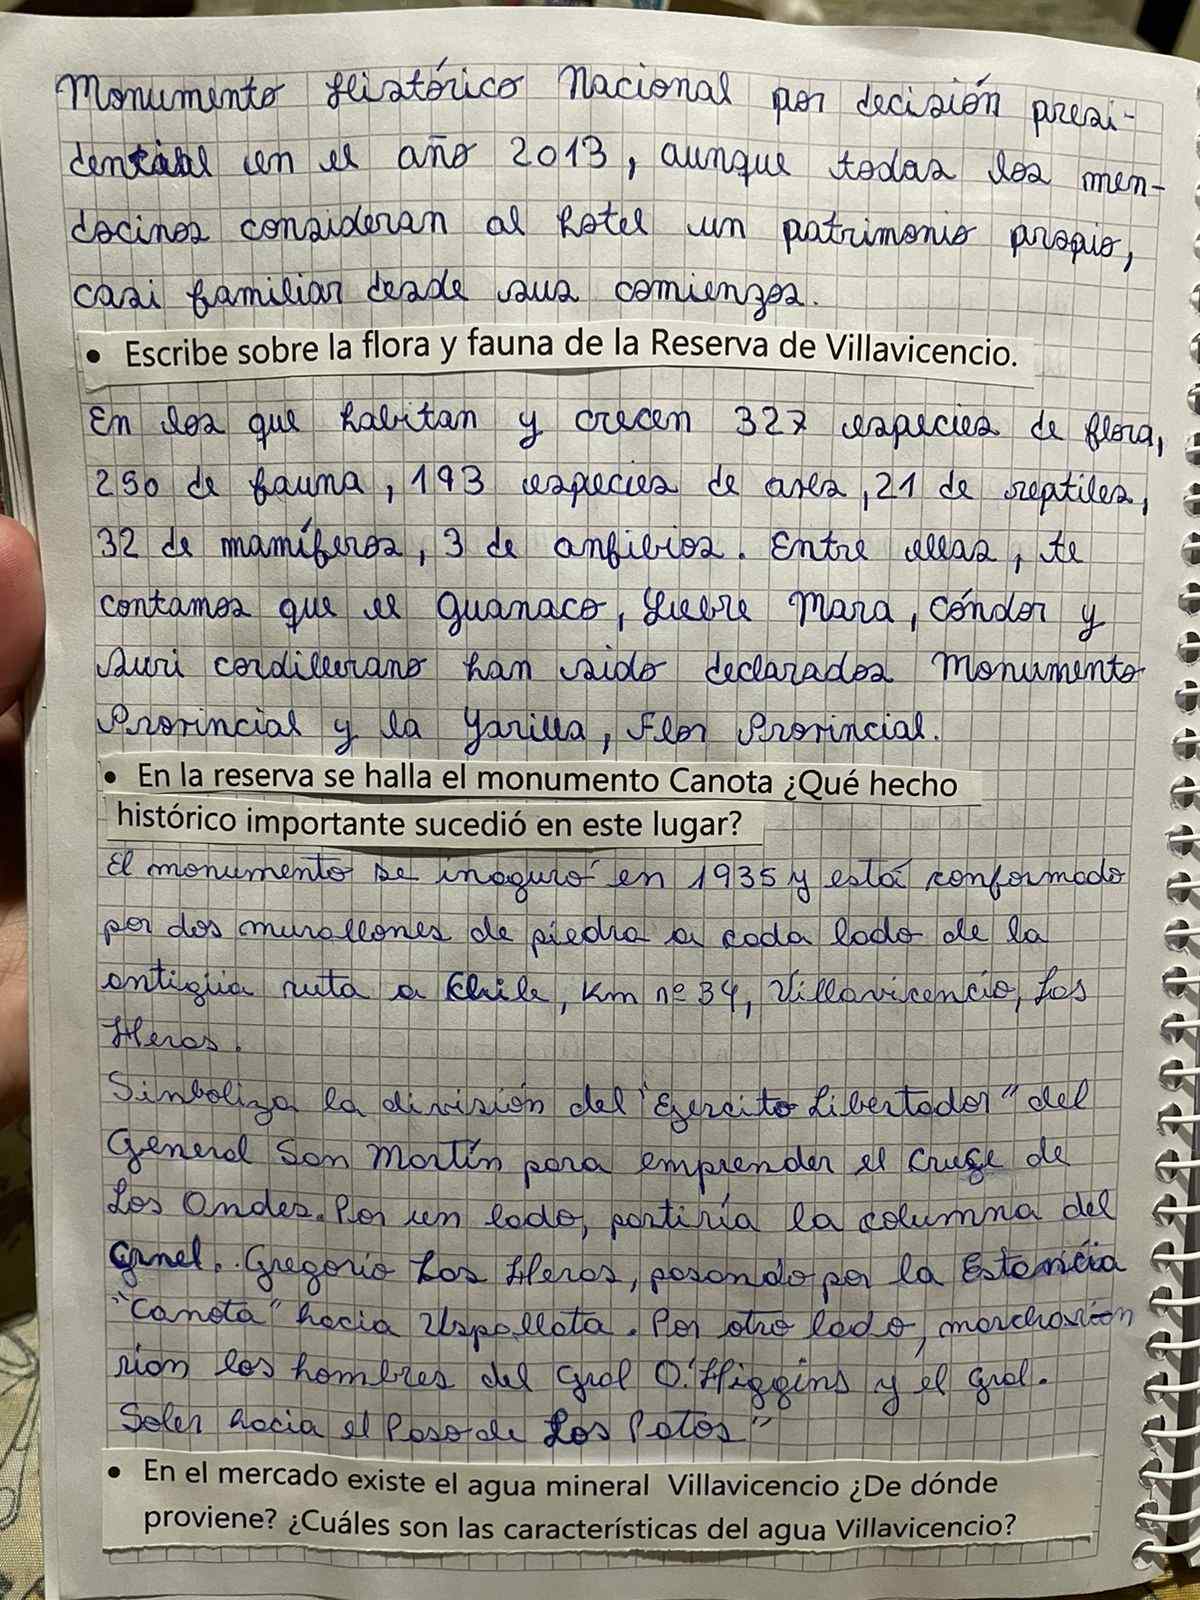 Monumento Histórico Nacional por decisión presi-
dencial en el año 2013, aunque todas los men-
docinos consideran al hotel un patrimonio propio,
casi familiar desde sus comienzos.
• Escribe sobre la flora y fauna de la Reserva de Villavicencio.
En los que habitan y crecen 327 especies de flora,
250 de fauna, 193 especies de aves, 21 de reptiles,
32 de mamíferos, 3 de anfibios. Entre ellas, te
contamos que el guanaco, Liebre Mara, Cóndor y
Suri cordillerano han sido declarados Monumento
Provincial y la Yarilla, Flor Provincial.
• En la reserva se halla el monumento Canota ¿Qué hecho
histórico importante sucedió en este lugar?
El monumento se inaguró en 1935 y está conformado
por dos murallones de piedra a cada lado de la
antigua ruta a Chile, Km nº 34, Villavicencio, Las
Heras.
Simboliza la división del "Ejercito Libertador" del
General San Martín para emprender el cruce de
Los Andes. Por un lado, partiría la columna del
Grnel. Gregorio Las Heras, pasando por la Estancia
"Canota" hacia Uspallata. Por otro lado,
rian los hombres del Gral O'Higgins y el Gral.
Soler hacia el Paso de Los Patos"
• En el mercado existe el agua mineral Villavicencio ¿De dónde
proviene? ¿Cuáles son las características del agua Villavicencio?